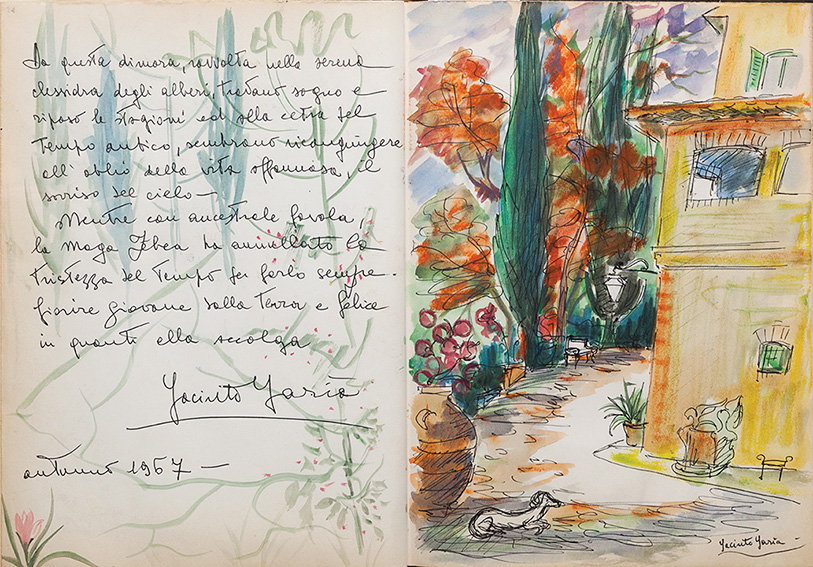 In questa dimora, ravvolta nella serena
clessidra degli alberi, trovano sogno e
riposo le stagioni ed alla cetra del
tempo antico, sembrano ricongiungere
all'oblio della vita affannosa, il
sorriso del cielo —
Mentre con ancestrale favola,
la maga ha annullato la
tristezza del tempo per farlo sempre
fiorire giovane dalla terra e felice
in quanti ella accolga
Jacinto Yaria
autunno 1967 —
Jacinto Yaria —